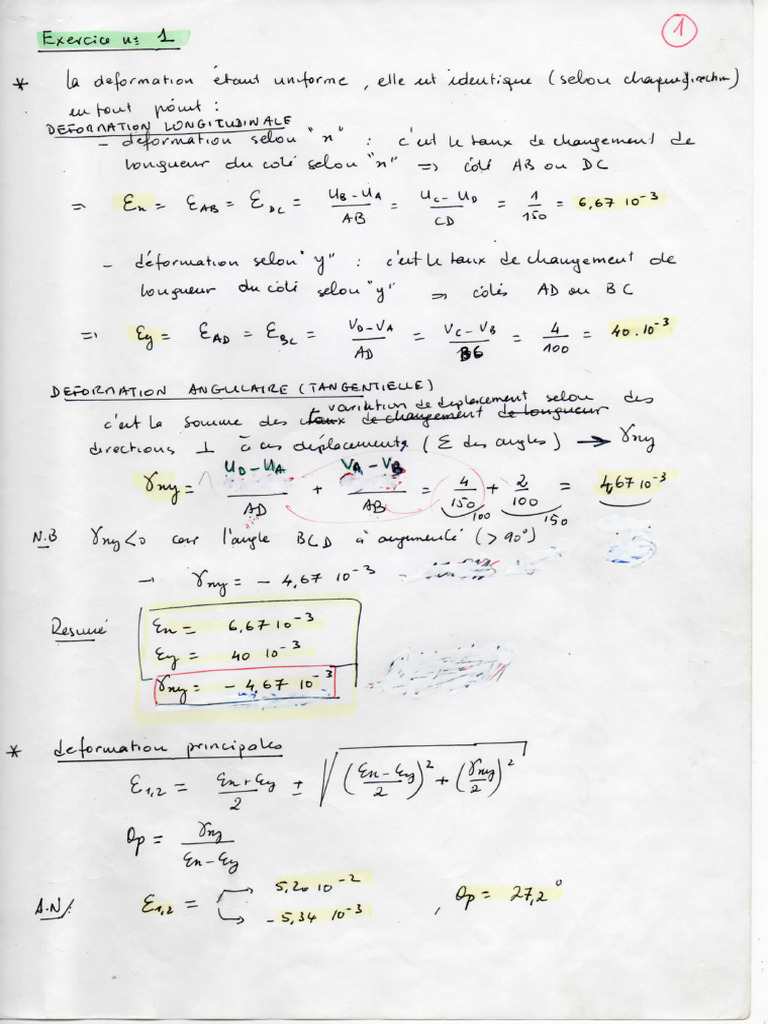 Exercice n: 1
1
* la deformation étant uniforme, elle est identique (selon chaque direction)
en tout point :
DEFORMATION LONGITUDINALE
- deformation selon "x" : c'est le taux de changement de
longueur du coté selon "x" => côté AB ou DC
=> Ex = EAB = EDC = (UB - UA)/AB = (UC - UD)/CD = 1/150 = 6,67 10^-3
- déformation selon "y" : c'est le taux de changement de
longueur du coté selon "y" => côtés AD ou BC
=> Ey = EAD = EBC = (VD - VA)/AD = (VC - VB)/BC = 4/100 = 40.10^-3
DEFORMATION ANGULAIRE (TANGENTIELLE)
variation de deplacement selon des
c'est la somme des taux de changement de longueur
directions ⊥ à ces déplacements (Σ des angles) → γxy
γxy = (UD - UA)/AD + (VA - VB)/AB = 4/150 + 2/100 = 4,67 10^-3
100 150
N.B γxy<0 car l'angle BCD à augmenté (> 90°)
→ γxy = - 4,67 10^-3
Resumé
Ex = 6,67 10^-3
Ey = 40 10^-3
γxy = - 4,67 10^-3
* deformation principales
E1,2 = (Ex + Ey)/2 ± √(((Ex - Ey)/2)^2 + (γxy/2)^2)
θp = γxy/(Ex - Ey)
A.N/ E1,2 = 5,20 10^-2
- 5,34 10^-3 , θp = 27,2°